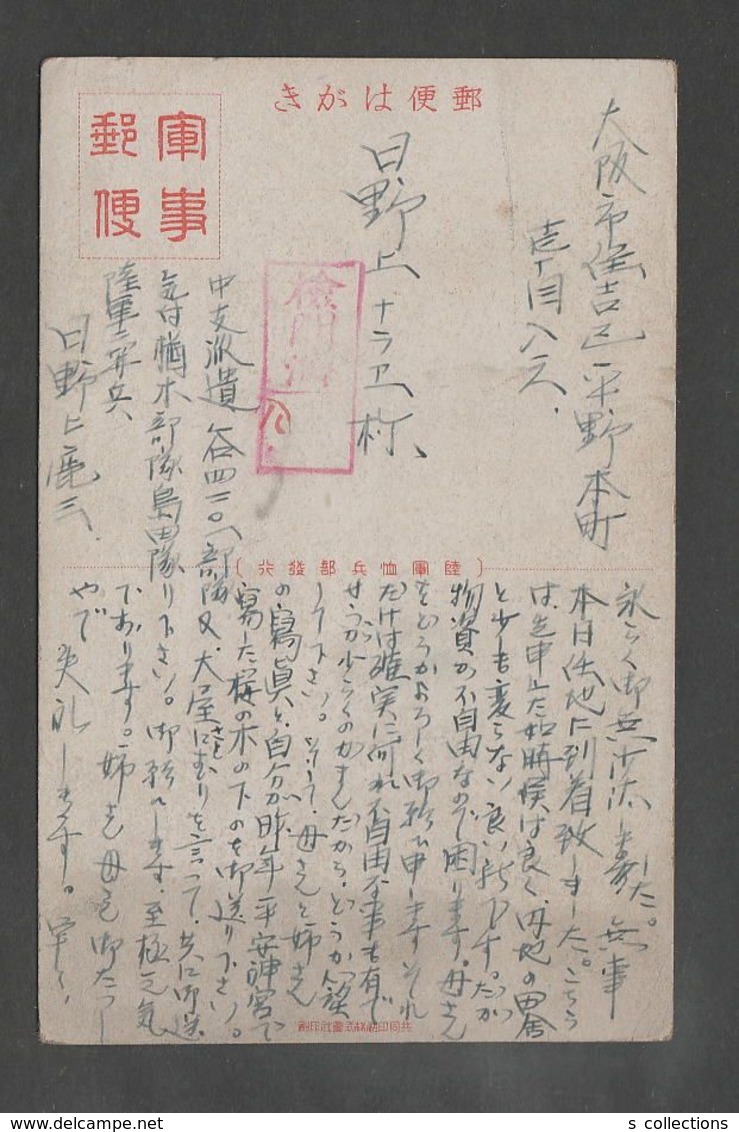 郵便はがき
軍事
郵便
大阪市住吉区平野本町
壱丁目八六、
日野上ナラヱ様、
検閲済
中支派遣谷四二〇一部隊
気付楢木部隊島田隊
陸軍二等兵
日野上鹿三、
(陸軍恤兵部發行)
永らく御無沙汰しました。無事
本日任地に到着致しました。こちら
は先申した如時候は良く、内地の田舎
と少しも変らない良い所です。だが
物資が不自由なので困ります。母さん
をどうかよろしく御願ひ申しますそれ
だけは確実に何れ不自由な事も有で
せうが少らくのがまんだから、どうか
して下さい。そして、母さんと姉さん
の寫眞と、自分が昨年平安神宮で
寫した桜の木の下のを御送り下さい。
又、大屋にむりを言って、共に御送
り下さい。御願ひします、至極元気
であります。姉さん母さん御たっし
やで 失礼します。早々、
共同印刷株式會社印刷
s collections